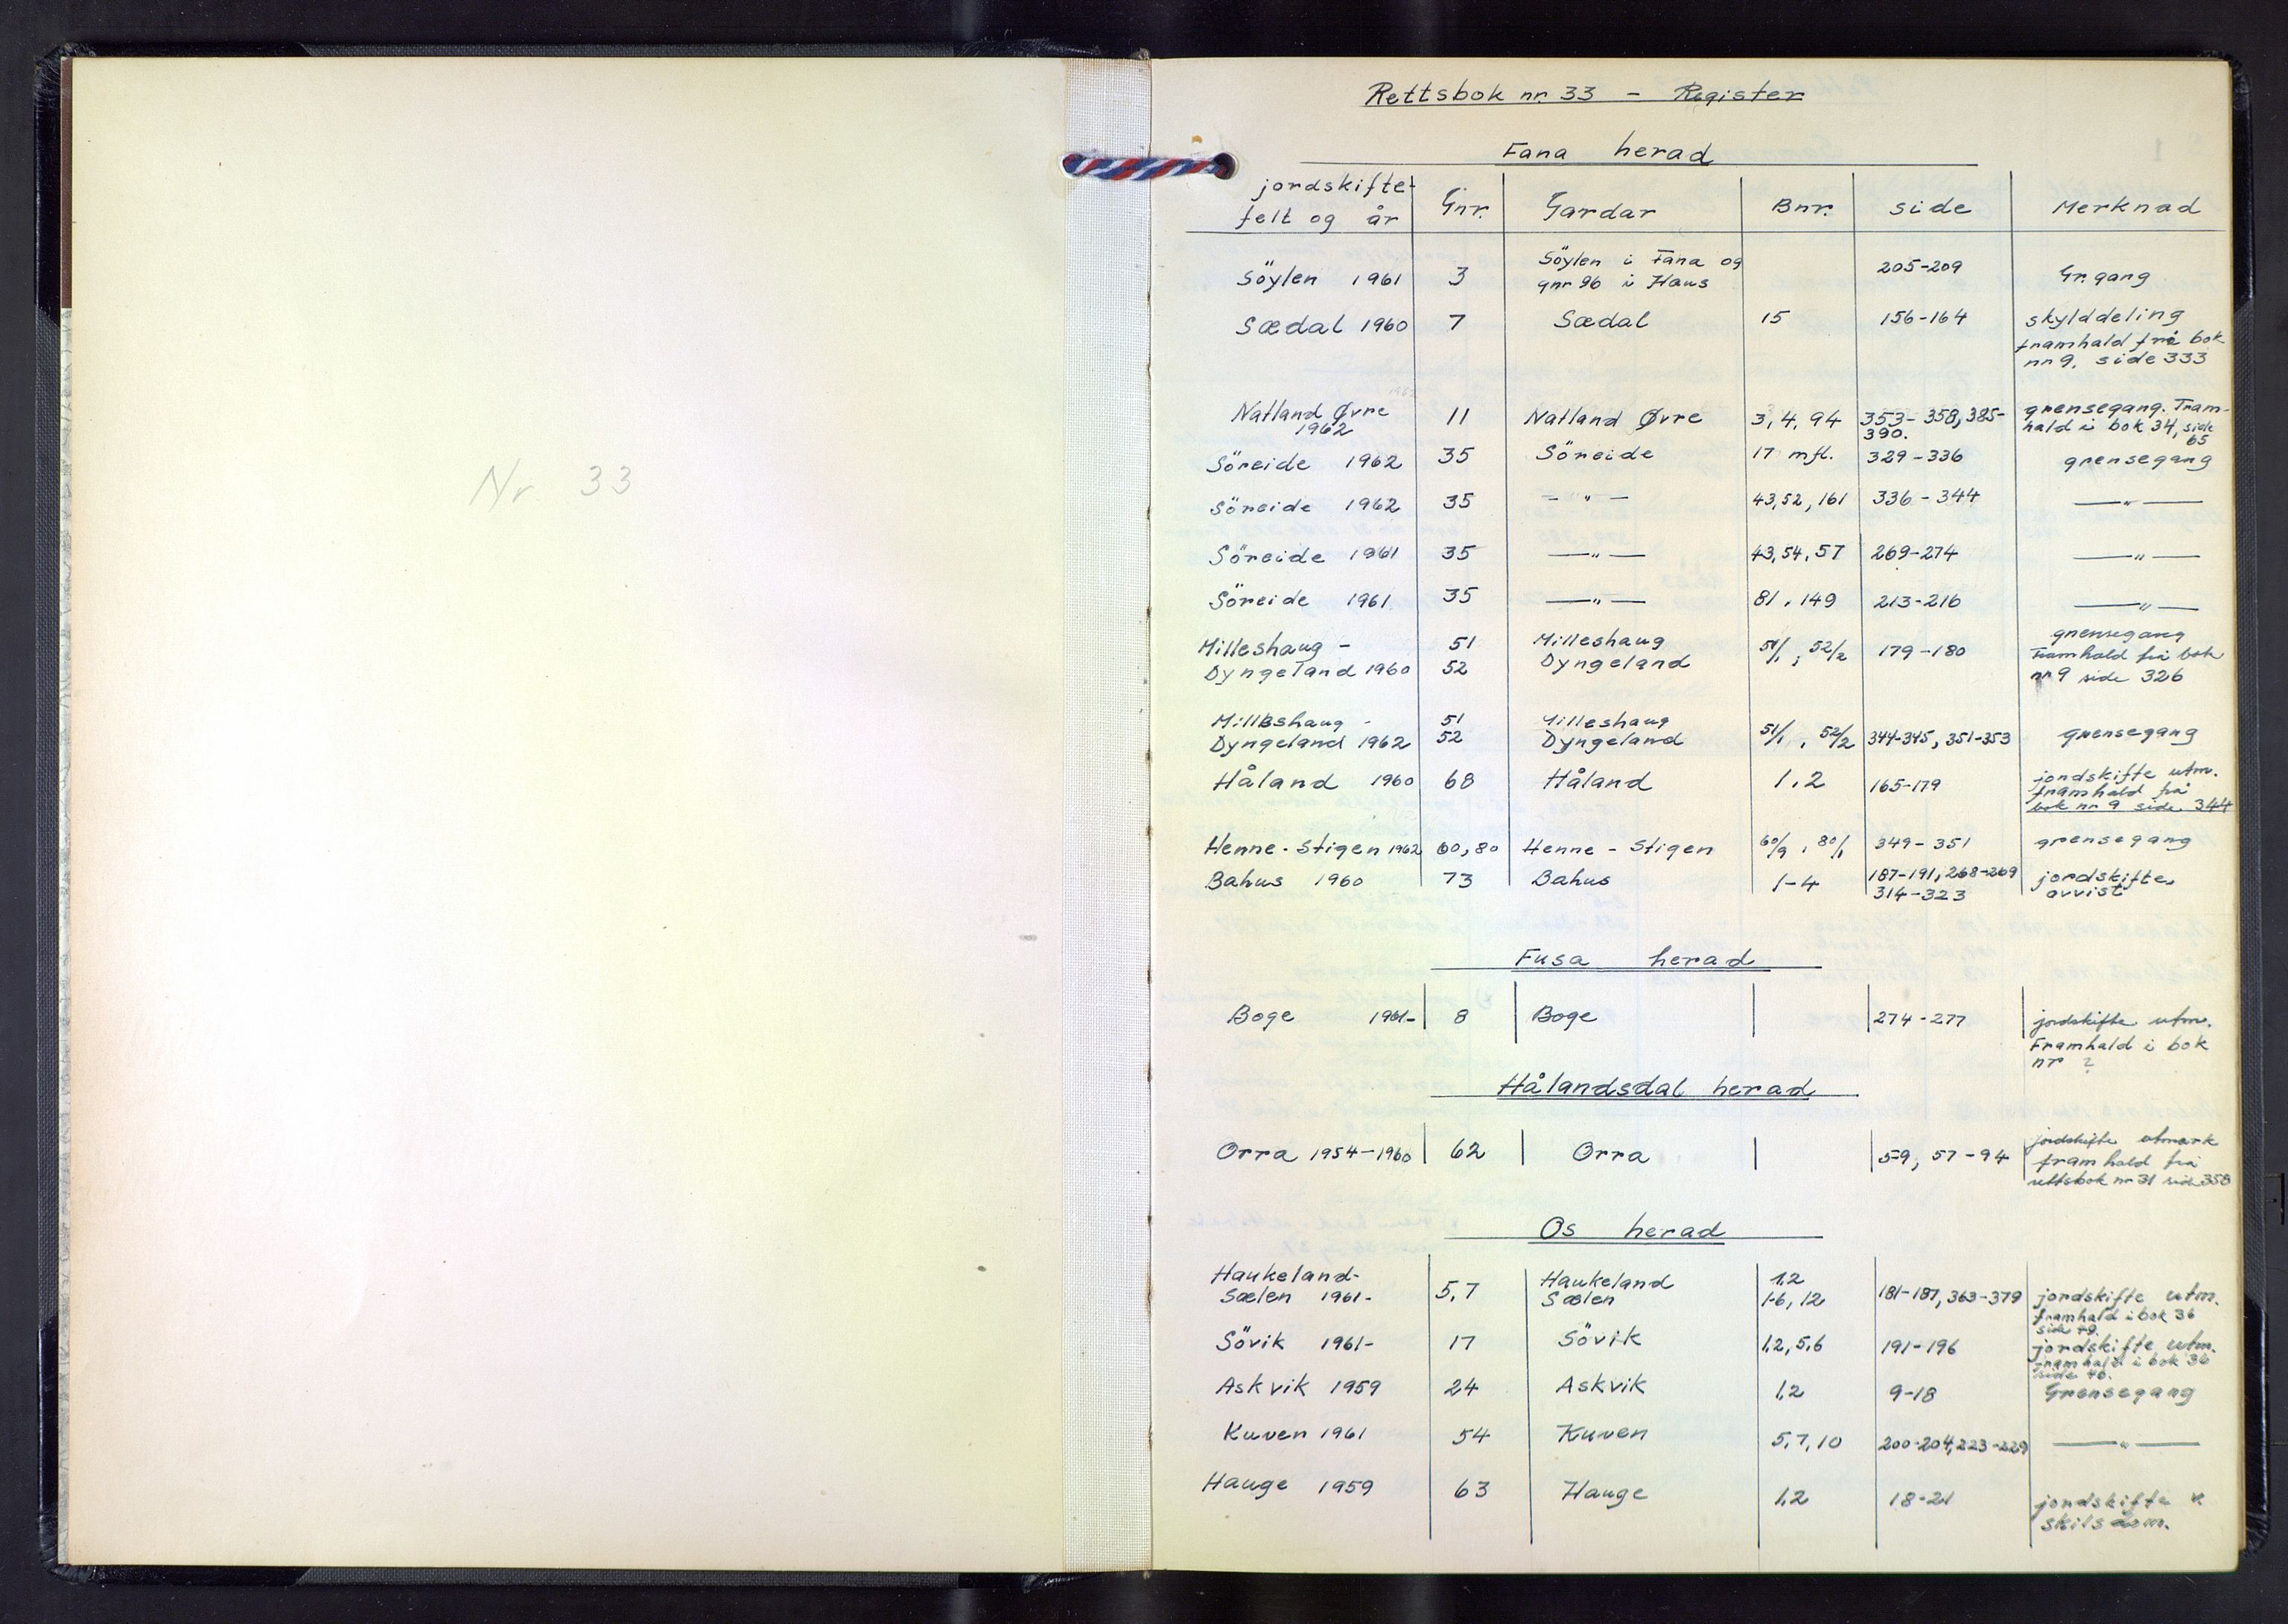 Nr. 33
Rettsbok nr. 33 - Register
Fana herad
jordskifte-
felt og år Gnr. Gardar Bnr. side Merknad
Söylen i Fana og
Söylen 1961 3 gnr 96 i Haus 205-209 Gr.gang
Sædal 1960 7 Sædal 15 156-164 skylddeling
framhald frå bok
nr 9. side 333
Natland Øvre 11 Natland Øvre 3, 4, 94 353-358, 385- grensegang. Fram-
1962 390. hald i bok 34, side
65
Söreide 1962 35 Söreide 17 mfl. 329-336 grensegang
Söreide 1962 35 - " - 43, 52, 161 336-344 - " -
Söreide 1961 35 - " - 43, 54, 57 269-274 - " -
Söreide 1961 35 - " - 81, 149 213-216 - " -
Milleshaug - 51 Milleshaug 51/1, 52/2 179-180 grensegang
Dyngeland 1960 52 Dyngeland Framhald frå bok
nr 9 side 326
Milleshaug - 51 Milleshaug
Dyngeland 1962 52 Dyngeland 51/1, 52/2 344-345, 351-353 grensegang
Håland 1960 68 Håland 1, 2 165-179 jordskifte utm.
framhald frå
bok nr 9 side 344
Henne-Stigen 1962 60, 80 Henne-Stigen 60/9, 80/1 349-351 grensegang
Bahus 1960 73 Bahus 1-4 187-191, 268-269 jordskifte,
314-323 avvist
Fusa herad
Boge 1961- 8 Boge 274-277 jordskifte utm.
Framhald i bok
nr ?
Hålandsdal herad
Orra 1954-1960 62 Orra 59, 57-94 jordskifte utmark
framhald frå
rettsbok nr 31 side 358
Os herad
Haukeland- 5, 7 Haukeland 1,2
Sælen 1961- Sælen 1-6, 12 181-187, 363-379 jordskifte utm.
framhald i bok 36
side 79.
Sövik 1961- 17 Sövik 1,2, 5,6 191-196 jordskifte utm.
framhald i bok 36
side 76.
Askvik 1959 24 Askvik 1,2 9-18 Grensegang
Kuven 1961 54 Kuven 5, 7, 10 200-204, 223-229 - " -
Hauge 1959 63 Hauge 1,2 18-21 jordskifte v
skilsdom.